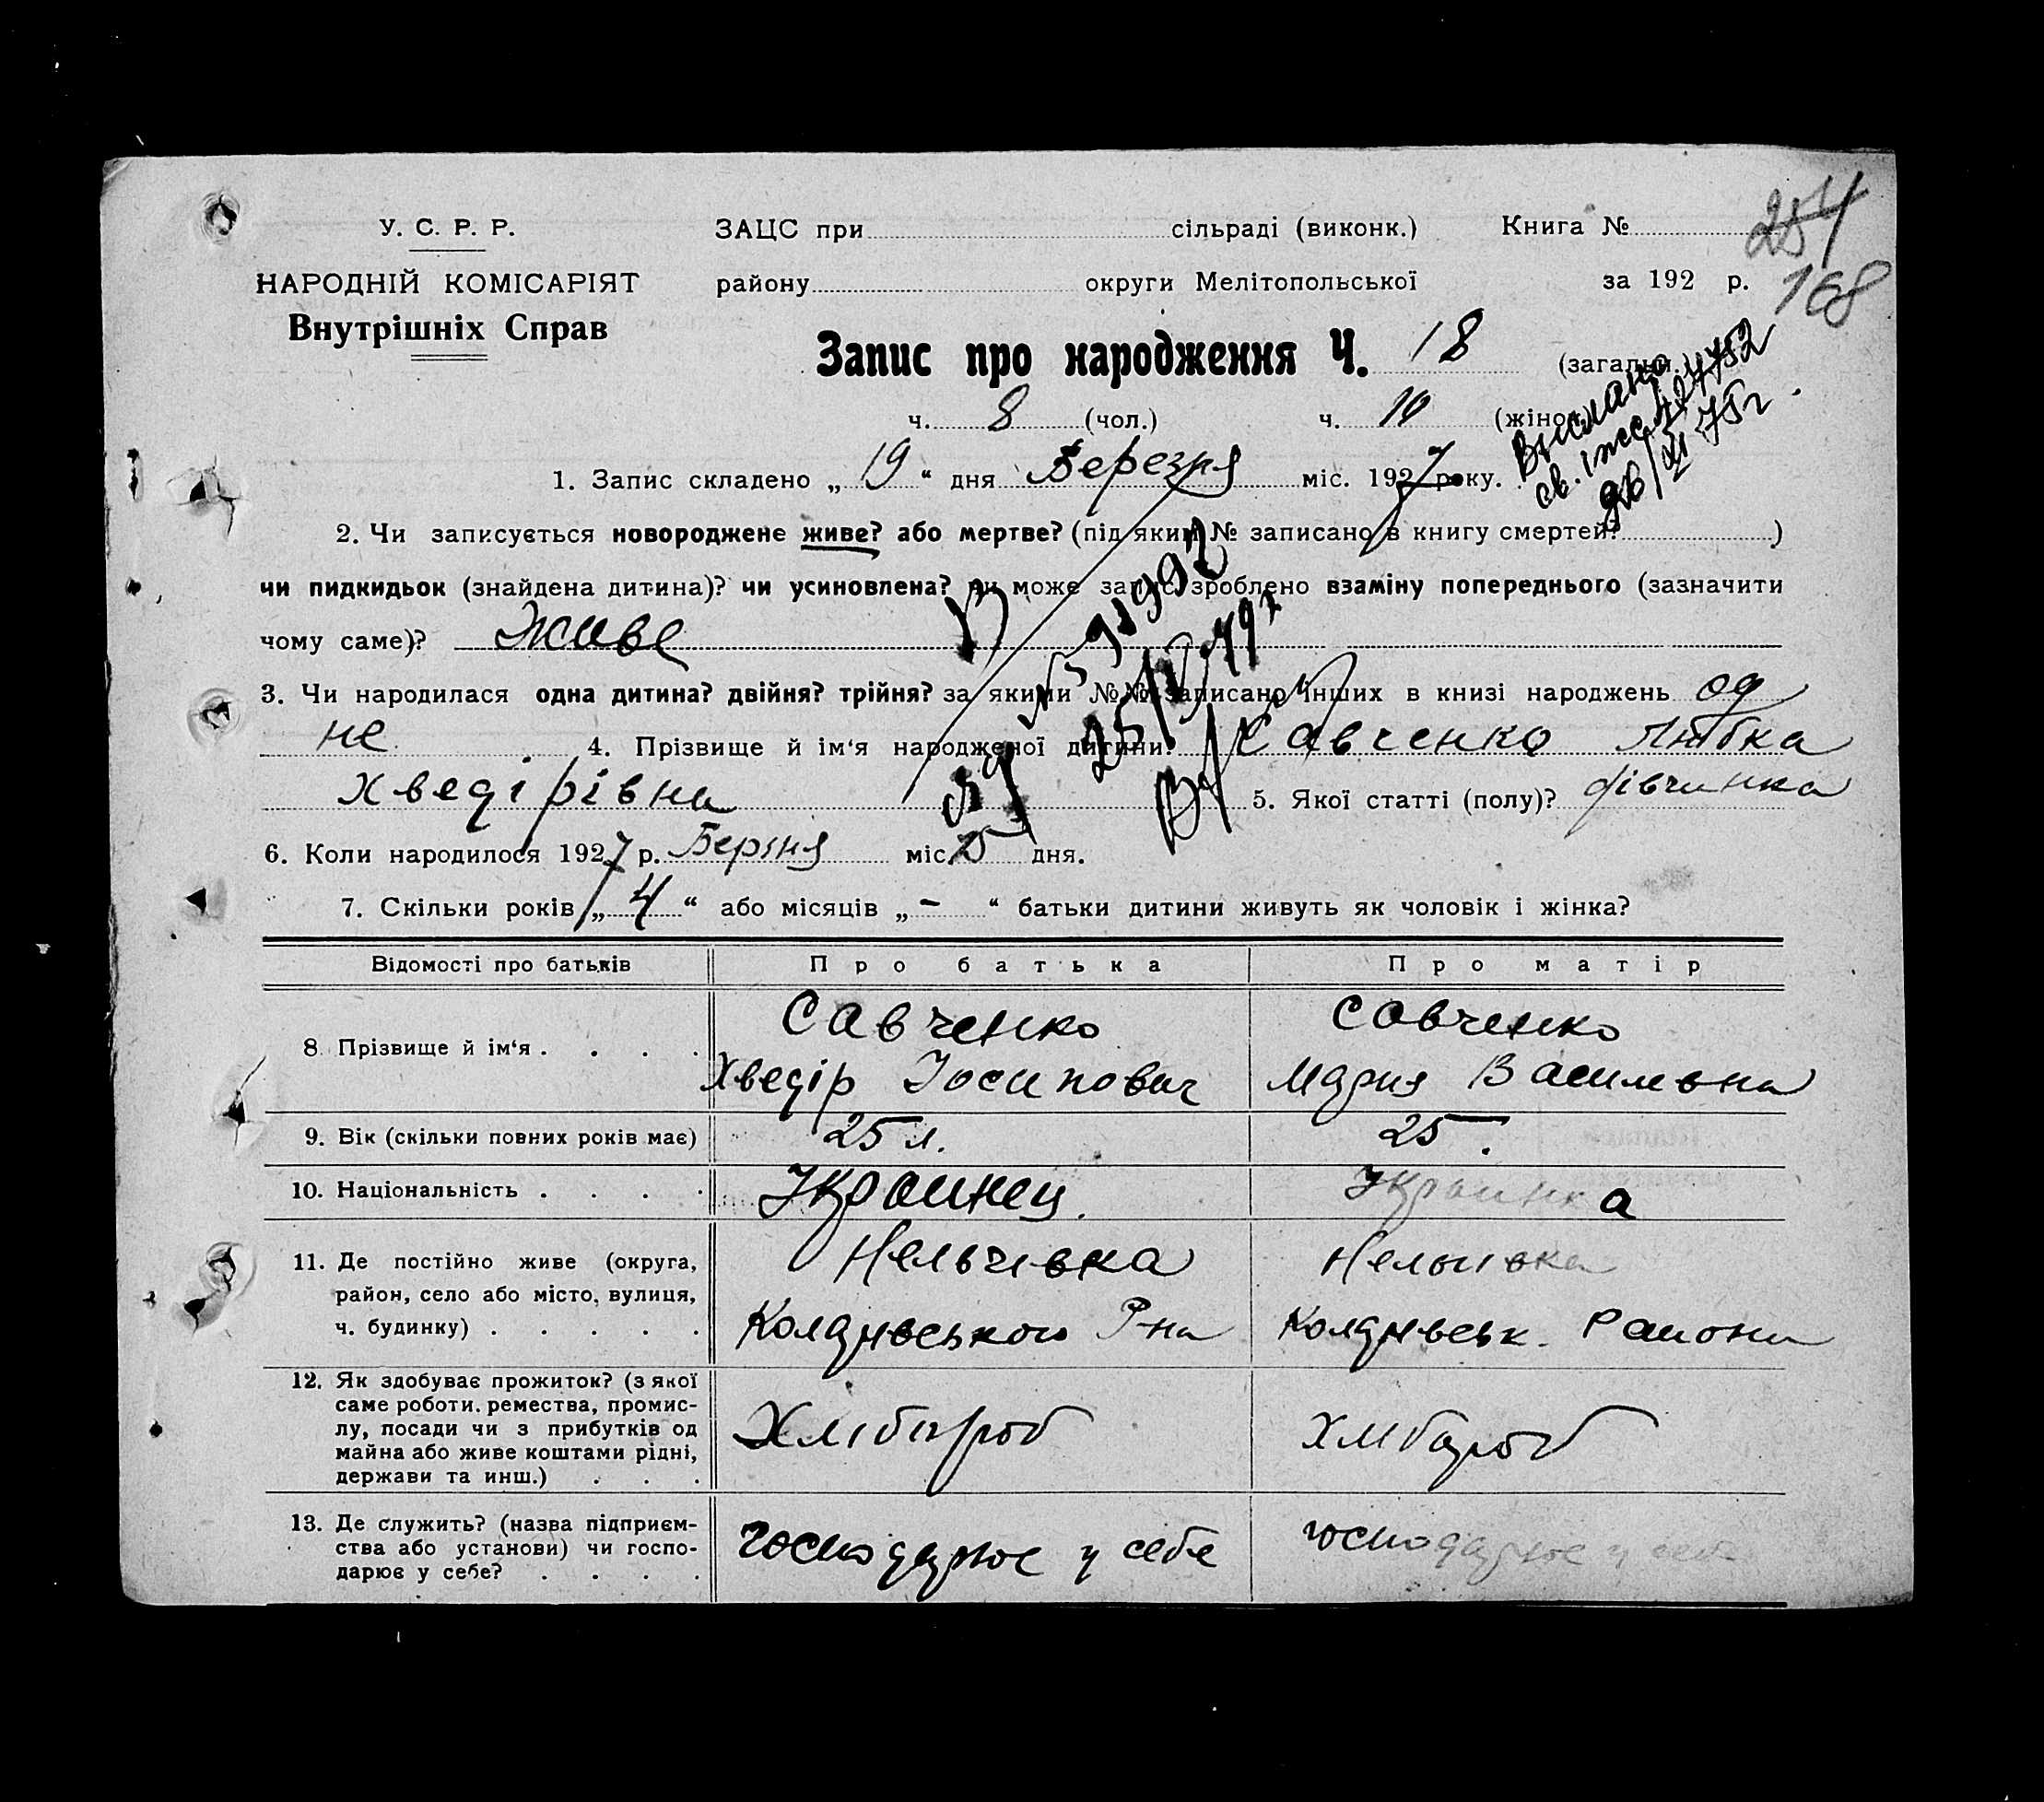 У. С. Р. Р.
НАРОДНІЙ КОМІСАРІЯТ
Внутрішніх Справ
ЗАЦС при сільраді (виконк.)
району округи Мелітопольської
Книга № 254
за 192 р. 168
Запис про народження Ч. 18 (загальн.)
ч. 8 (чол.) ч. 10 (жіноч.)
Вислано
св.
75г.
1. Запис складено „19“ дня Березня міс. 1927 року.
2. Чи записується новороджене живе? або мертве? (під яким № записано в книгу смертей? )
чи пидкидьок (знайдена дитина)? чи усиновлена? чи може запис зроблено взаміну попереднього (зазначити
чому саме)? Живе
3. Чи народилася одна дитина? двійня? трійня? за якими №№ записано інших в книзі народжень од
не 4. Прізвище й ім‘я народженої дитини. Савченко Любка
Хведірівна 5. Якої статті (полу)? дівчинка
6. Коли народилося 1927 р. міс. дня.
7. Скільки років „4“ або місяців „-“ батьки дитини живуть як чоловік і жінка?
Відомості про батьків Про батька Про матір
8 Прізвище й ім‘я . . . . Савченко Савченко
Хведір Іосипович Мария Василевна
9. Вік (скільки повних років має) 25 л. 25
10. Національність . . . . Украинец. Украинка
11. Де постійно живе (округа,
район, село або місто, вулиця,
ч. будинку) . . . . .
Нельчівка Нельчівка
Р-на Района
12. Як здобуває прожиток? (з якої
саме роботи. ремества, промис-
лу, посади чи з прибутків од
майна або живе коштами рідні,
держави та инш.) . . .
Хлібороб Хлібороб
13. Де служить? (назва підприєм-
ства або установи) чи госпо-
дарює у себе? . . . .
господарює у себе господарює у себе